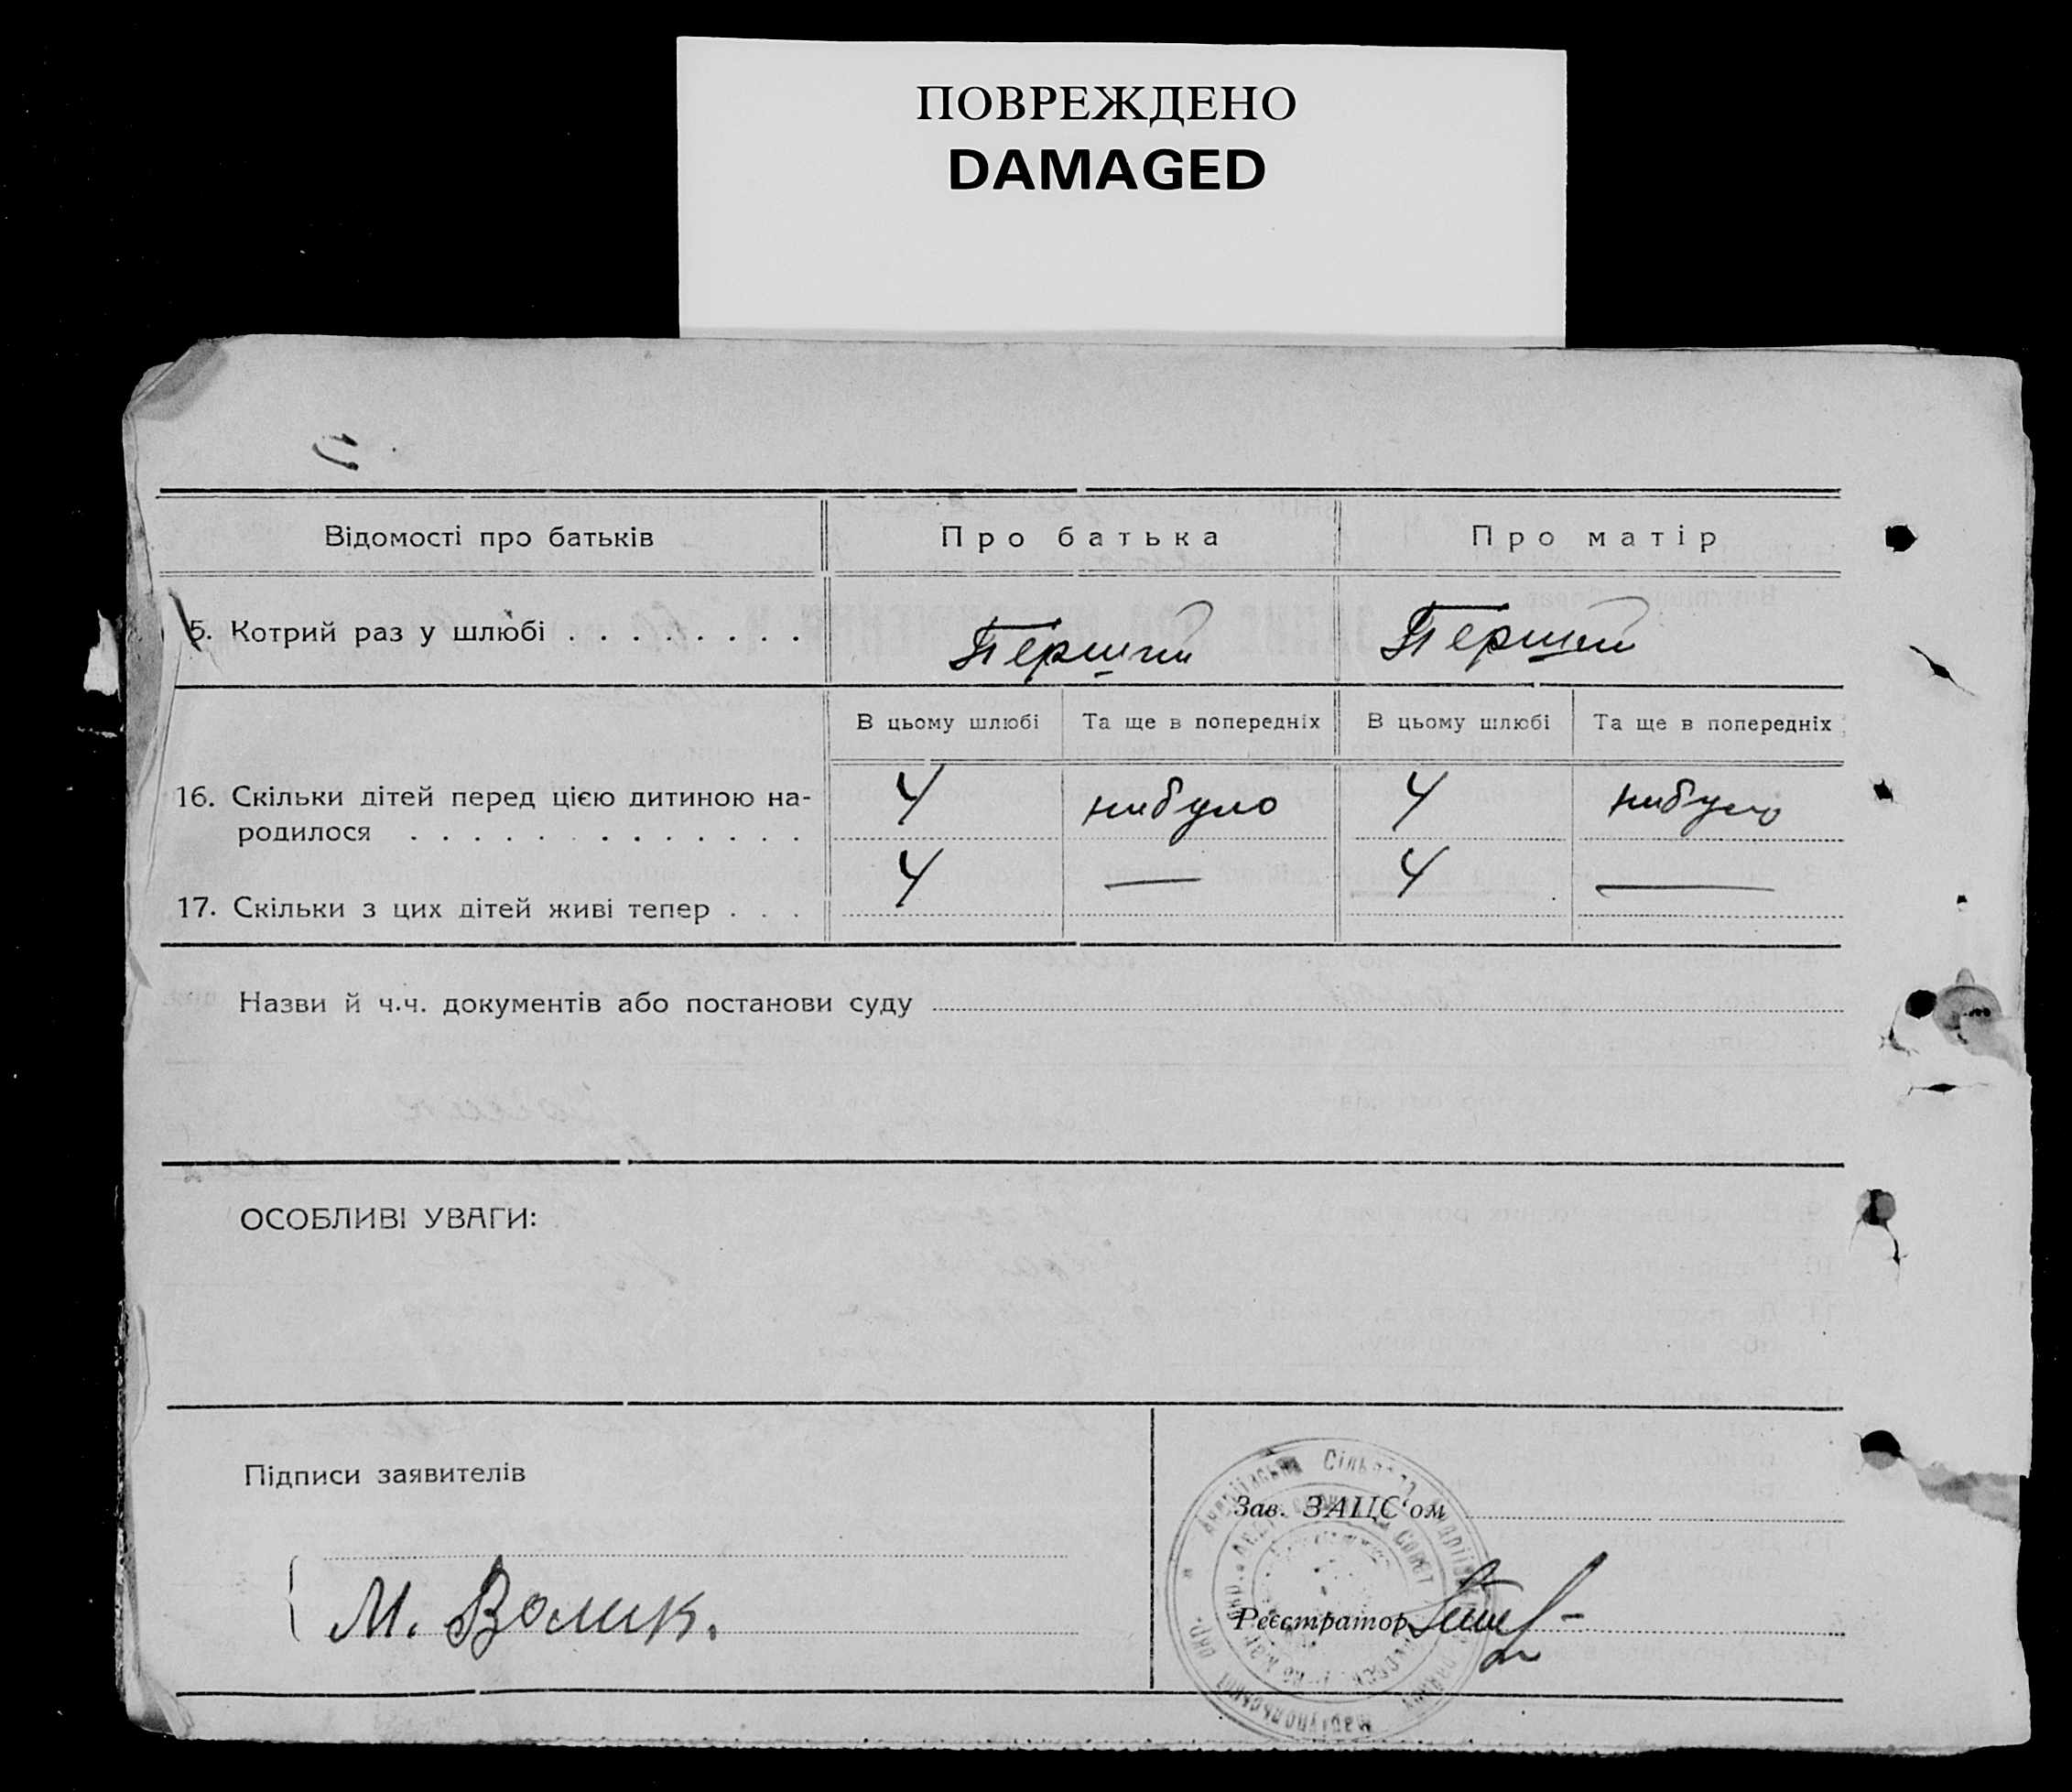 ПОВРЕЖДЕНО
DAMAGED
Відомості про батьків
Про батька
Про матір
5. Котрий раз у шлюбі
Перший
Перший
В цьому шлюбі
Та ще в попередніх
В цьому шлюбі
Та ще в попередніх
16. Скільки дітей перед цією дитиною на-
родилося
4
нибуло
4
нибуло
17. Скільки з цих дітей живі тепер . . .
4
—
4
—
Назви й ч.ч. документів або постанови суду
ОСОБЛИВІ УВАГИ:
Підписи заявителів
М. Волик.
Зав. ЗАЦС‘ом
Реєстратор